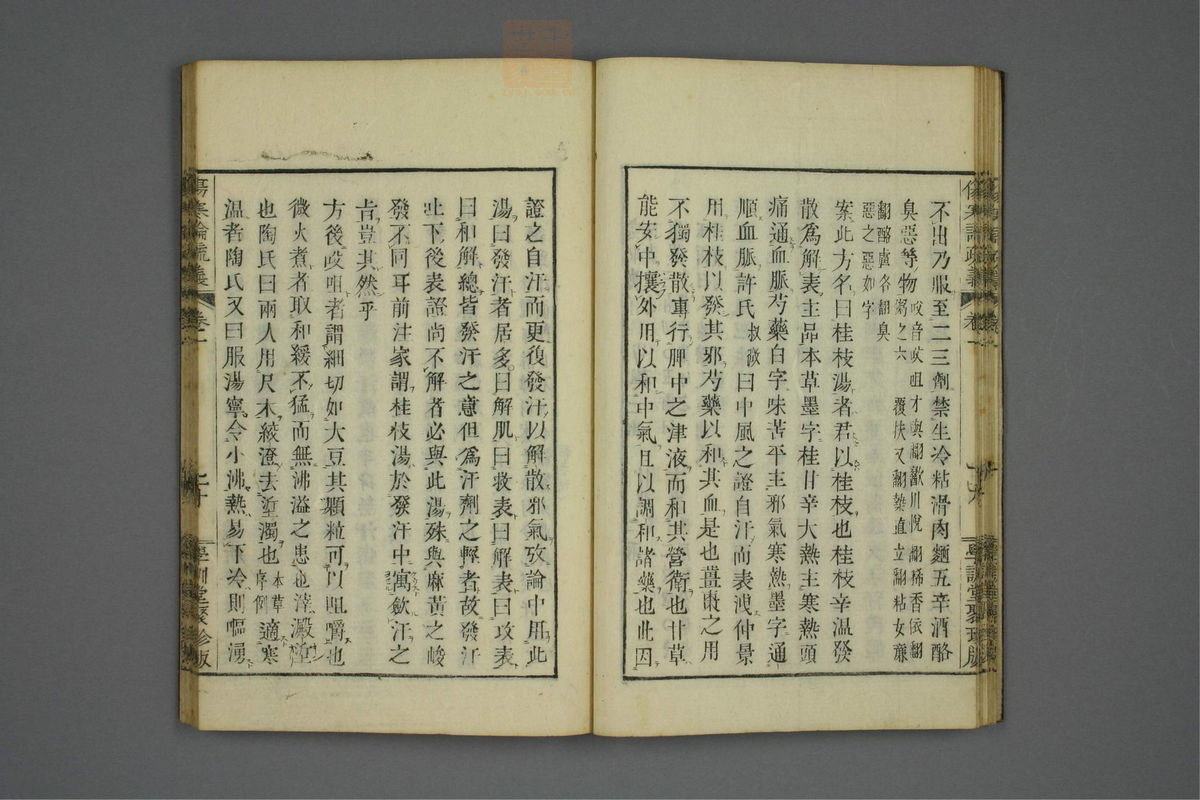 不出乃服至二三劑禁生冷粘滑肉麵五辛酒酪
臭惡等物
㕮音㕮咀才與翻歠川悅翻稀香依翻
粥之六翻覆扶又翻雜直立翻粘女廉
翻酪盧各翻臭
惡之惡如字
案此方名曰桂枝湯者君以桂枝也桂枝辛溫發
散爲解表主品本草墨字桂甘辛大熱主寒熱頭
痛通血脈芍藥白字味苦平主邪氣寒熱墨字通
順血脈許氏叔微曰中風之證自汗而表洩仲景
用桂枝以發其邪芍藥以和其血是也薑棗之用
不獨發散專行脾中之津液而和其營衛也甘草
能安中攘外用以和中氣且以調和諸藥也此因
證之自汗而更復發汗以解散邪氣攷論中用此
湯曰發汗者居多曰解肌曰救表曰解表曰攻表
曰和解總皆發汗之意但爲汗劑之輕者故發汗
吐下後表證尚不解者必與此湯殊與麻黃之峻
發不同耳前注家謂桂枝湯於發汗中寓歛汗之
旨豈其然乎
方後㕮咀者謂細切如大豆其顆粒可以咀嚼也
微火煮者取和緩不猛而無沸溢之患也滓澱垽
也陶氏曰兩人用尺木絞澄去垽濁也本草序例適寒
溫者陶氏又曰服湯寧令小沸熱易下冷則嘔湧
傷寒論疏義
卷一
學訓堂聚珍版